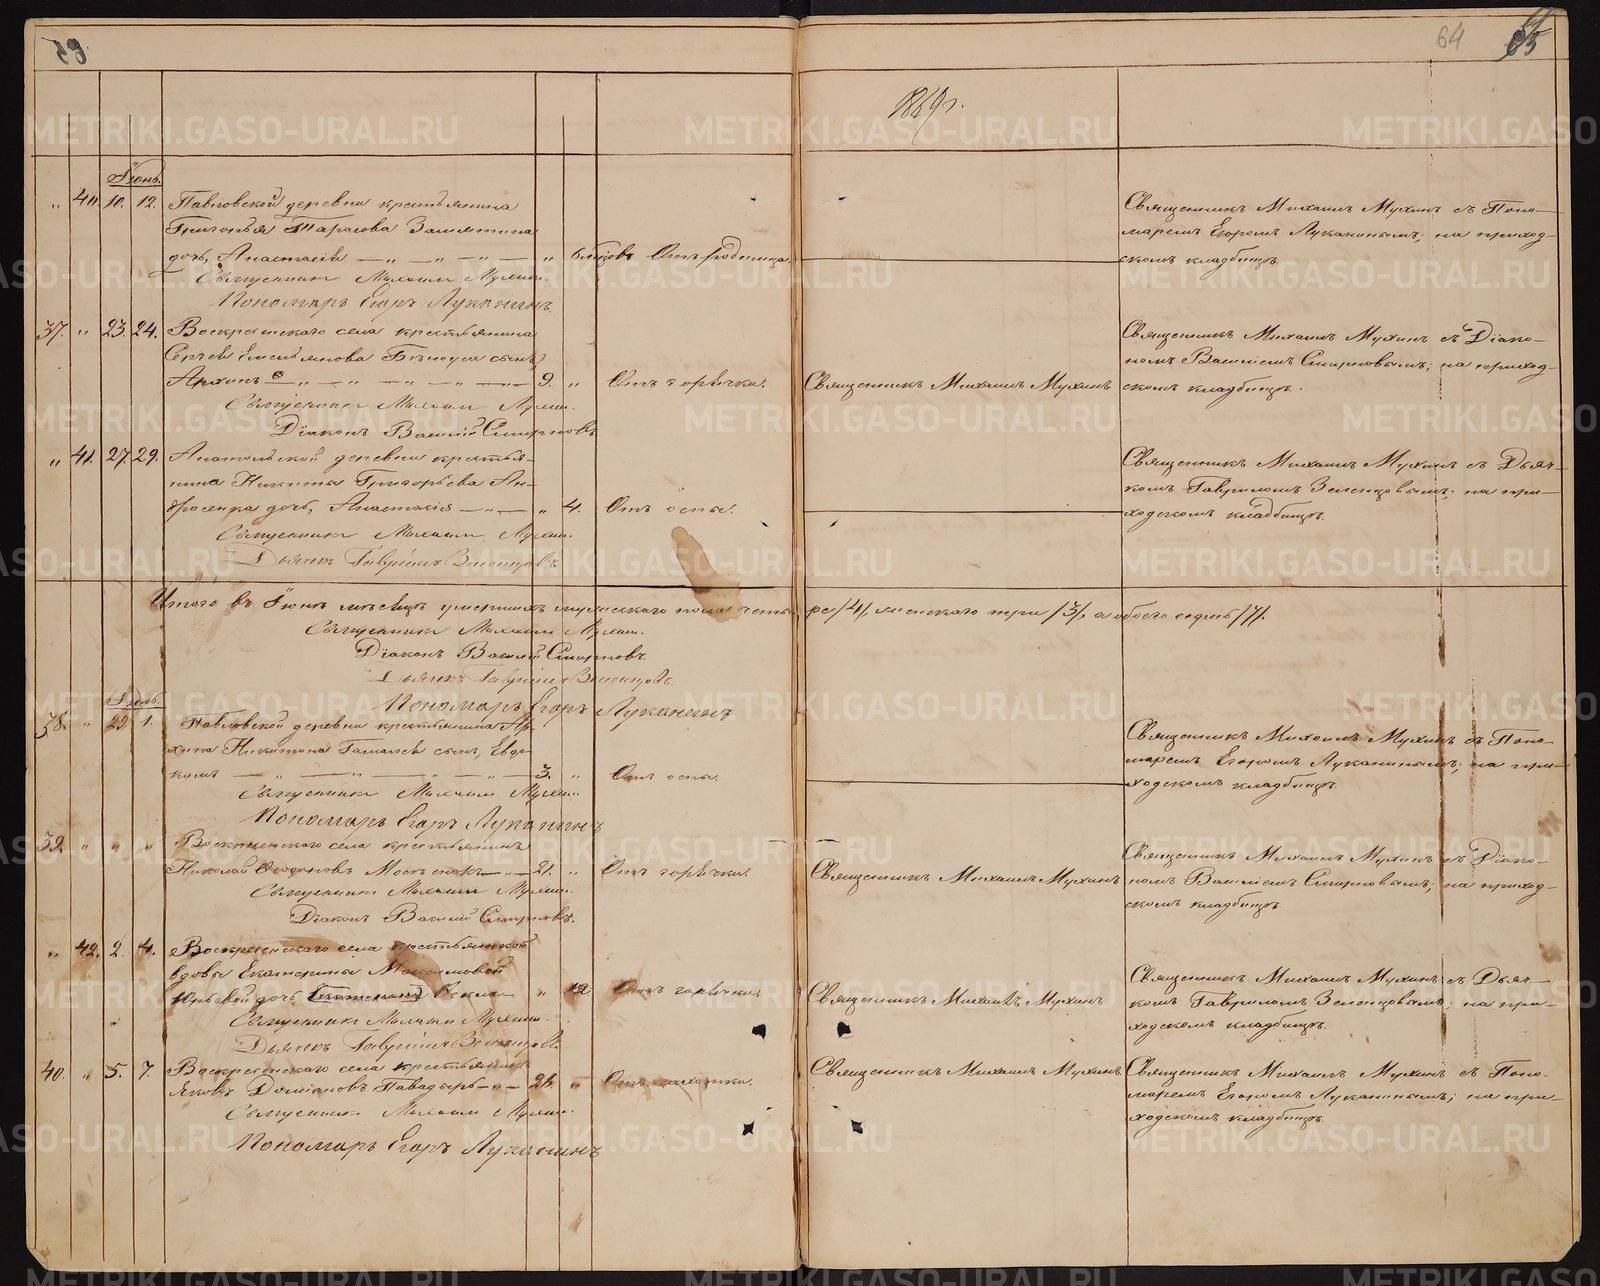 59
64
65
1869 г.
Іюнь.
„ 40. 10. 12. Павловской деревни крестьянина
Григорья Тарасова Замятина
дочь, Анастасія — „ — „ — „ — „ 6 мѣсцовъ Отъ родимца.
Священникъ Михаилъ Мухинъ.
Пономарь Егоръ Луканинъ.
Священникъ Михаилъ Мухинъ съ Поно-
маремъ Егоромъ Луканинымъ; на приход-
скомъ кладбищѣ.
37. „ 23. 24. Воскресенскаго села крестьянина
Сергѣя Емельянова сынъ,
Архипъ — „ — „ — „ — „ — 9. „ Отъ горячки.
Священникъ Михаилъ Мухинъ.
Діаконъ Василій Смирновъ.
Священникъ Михаилъ Мухинъ
Священникъ Михаилъ Мухинъ съ Діако-
номъ Василіемъ Смирновымъ; на приход-
скомъ кладбищѣ.
„ 41. 27. 29. Анатольской деревни крестья-
нина Никиты Григорьева Ан-
дросенка дочь, Анастасія — „ — „ 4. Отъ оспы.
Священникъ Михаилъ Мухинъ.
Дьячекъ Гавріилъ Зеленцовъ.
Священникъ Михаилъ Мухинъ съ Дьяч-
комъ Гавриломъ Зеленцовымъ; на при-
ходскомъ кладбищѣ.
Итого въ Іюнѣ мѣсяцѣ умершихъ мужескаго пола четы-ре /4/, женскаго три /3/, а обоего седмь /7/.
Священникъ Михаилъ Мухинъ.
Діаконъ Василій Смирновъ.
Дьячекъ Гавріилъ Зеленцовъ.
Пономарь Егоръ Луканинъ
Іюль.
38. „ 29 1. Павловской деревни крестьянина Ар-
хипа Никитина сынъ, Евдо-
кимъ — „ — „ — „ — „ — 3. „ Отъ оспы.
Священникъ Михаилъ Мухинъ
Пономарь Егоръ Луканинъ
Священникъ Михаилъ Мухинъ съ Поно-
маремъ Егоромъ Луканинымъ; на при-
ходскомъ кладбищѣ.
39. „ „ „ Воскресенскаго села крестьянинъ
Николай — „ — 21. „ Отъ горячки.
Священникъ Михаилъ Мухинъ.
Діаконъ Василій Смирновъ.
Священникъ Михаилъ Мухинъ
Священникъ Михаилъ Мухинъ съ Діако-
номъ Василіемъ Смирновымъ; на приход-
скомъ кладбищѣ.
„ 42. 2. 4. Воскресенскаго села крестьянской
вдовы Екатерины Максимовой
Юрьевой дочь Ѳекла — „ 12 Отъ горячки.
Священникъ Михаилъ Мухинъ.
Дьячекъ Гавріилъ Зеленцовъ.
Священникъ Михаилъ Мухинъ
Священникъ Михаилъ Мухинъ съ Дьяч-
комъ Гавриломъ Зеленцовымъ; на при-
ходскомъ кладбищѣ.
40. „ 5. 7. Воскресенскаго села крестьянинъ
Яковъ — „ — „
Священникъ Михаилъ Мухинъ.
Пономарь Егоръ Луканинъ
Священникъ Михаилъ Мухинъ
Священникъ Михаилъ Мухинъ съ Поно-
маремъ Егоромъ Луканинымъ; на при-
ходскомъ кладбищѣ.
METRIKI.GASO-URAL.RU